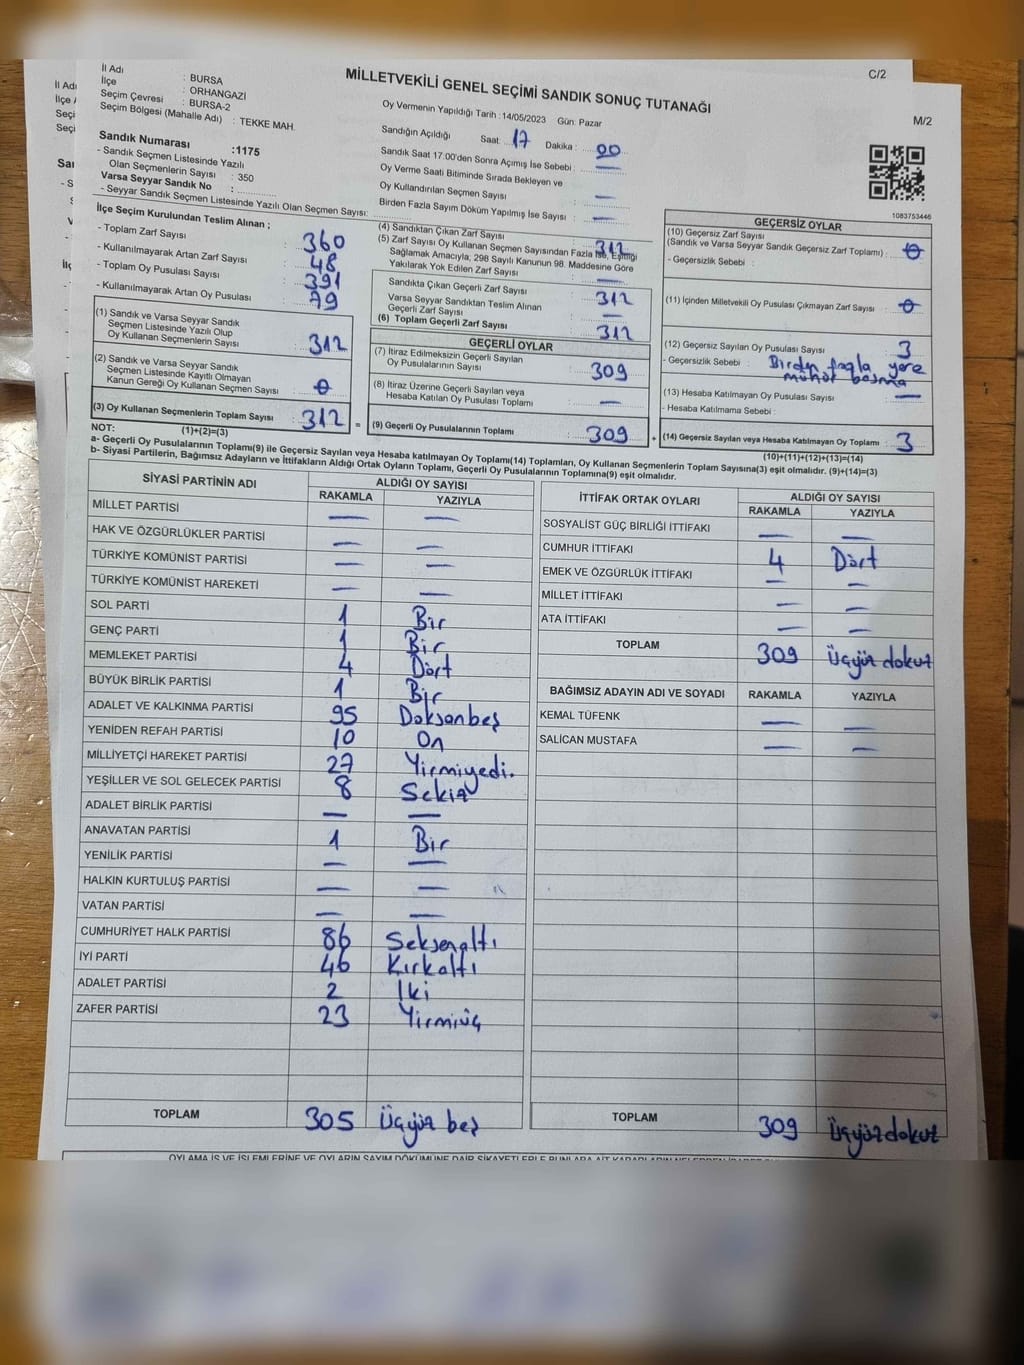 C/2
MİLLETVEKİLİ GENEL SEÇİMİ SANDIK SONUÇ TUTANAĞI
M/2
İl Adı : BURSA
İlçe : ORHANGAZİ
Seçim Çevresi : BURSA-2
Seçim Bölgesi (Mahalle Adı) : TEKKE MAH.
Sandık Numarası :1175
- Sandık Seçmen Listesinde Yazılı
Olan Seçmenlerin Sayısı : 350
Varsa Seyyar Sandık No :
- Seyyar Sandık Seçmen Listesinde Yazılı Olan Seçmen Sayısı:
Oy Vermenin Yapıldığı Tarih :14/05/2023 Gün: Pazar
Sandığın Açıldığı Saat: 17 Dakika : 00
Sandık Saat 17.00'den Sonra Açımış İse Sebebi : —
Oy Verme Saati Bitiminde Sırada Bekleyen ve
Oy Kullandırılan Seçmen Sayısı : —
Birden Fazla Sayım Döküm Yapılmış İse Sayısı : —
1083753446
İlçe Seçim Kurulundan Teslim Alınan ;
- Toplam Zarf Sayısı : 360
- Kullanılmayarak Artan Zarf Sayısı : 48
- Toplam Oy Pusulası Sayısı : 391
- Kullanılmayarak Artan Oy Pusulası : 79
(1) Sandık ve Varsa Seyyar Sandık
Seçmen Listesinde Yazılı Olup
Oy Kullanan Seçmenlerin Sayısı : 312
(2) Sandık ve Varsa Seyyar Sandık
Seçmen Listesinde Kayıtlı Olmayan
Kanun Gereği Oy Kullanan Seçmen Sayısı : 0
(3) Oy Kullanan Seçmenlerin Toplam Sayısı : 312
(1)+(2)=(3)
(4) Sandıktan Çıkan Zarf Sayısı : 312
(5) Zarf Sayısı Oy Kullanan Seçmen Sayısından Fazla İse, Eşitliği
Sağlamak Amacıyla; 298 Sayılı Kanunun 98. Maddesine Göre
Yakılarak Yok Edilen Zarf Sayısı : —
Sandıkta Çıkan Geçerli Zarf Sayısı : 312
Varsa Seyyar Sandıktan Teslim Alınan
Geçerli Zarf Sayısı : —
(6) Toplam Geçerli Zarf Sayısı : 312
GEÇERLİ OYLAR
(7) İtiraz Edilmeksizin Geçerli Sayılan
Oy Pusulalarının Toplamı : 309
(8) İtiraz Üzerine Geçerli Sayılan veya
Hesaba Katılan Oy Pusulası Toplamı : —
= (9) Geçerli Oy Pusulalarının Toplamı : 309
GEÇERSİZ OYLAR
(10) Geçersiz Zarf Sayısı
(Sandık ve Varsa Seyyar Sandık Geçersiz Zarf Toplamı) : 0
- Geçersizlik Sebebi :
(11) İçinden Milletvekili Oy Pusulası Çıkmayan Zarf Sayısı : 0
(12) Geçersiz Sayılan Oy Pusulası Sayısı : 3
- Geçersizlik Sebebi : Birden fazla yere
mühür basma
(13) Hesaba Katılmayan Oy Pusulası Sayısı : —
- Hesaba Katılmama Sebebi :
+ (14) Geçersiz Sayılan veya Hesaba Katılmayan Oy Toplamı : 3
(10)+(11)+(12)+(13)=(14)
NOT:
a- Geçerli Oy Pusulalarının Toplamı(9) ile Geçersiz Sayılan veya Hesaba katılmayan Oy Toplamı(14) Toplamları, Oy Kullanan Seçmenlerin Toplam Sayısına(3) eşit olmalıdır. (9)+(14)=(3)
b- Siyasi Partilerin, Bağımsız Adayların ve İttifakların Aldığı Ortak Oyların Toplamı, Geçerli Oy Pusulalarının Toplamına(9) eşit olmalıdır.
SİYASİ PARTİNİN ADI ALDIĞI OY SAYISI
RAKAMLA YAZIYLA
MİLLET PARTİSİ — —
HAK VE ÖZGÜRLÜKLER PARTİSİ — —
TÜRKİYE KOMÜNİST PARTİSİ — —
TÜRKİYE KOMÜNİST HAREKETİ — —
SOL PARTİ 1 Bir
GENÇ PARTİ 1 Bir
MEMLEKET PARTİSİ 4 Dört
BÜYÜK BİRLİK PARTİSİ 1 Bir
ADALET VE KALKINMA PARTİSİ 95 Doksanbeş
YENİDEN REFAH PARTİSİ 10 On
MİLLİYETÇİ HAREKET PARTİSİ 27 Yirmiyedi.
YEŞİLLER VE SOL GELECEK PARTİSİ 8 Sekiz
ADALET BİRLİK PARTİSİ — —
ANAVATAN PARTİSİ 1 Bir
YENİLİK PARTİSİ — —
HALKIN KURTULUŞ PARTİSİ — —
VATAN PARTİSİ — —
CUMHURİYET HALK PARTİSİ 86 Seksenaltı
İYİ PARTİ 46 Kırkaltı
ADALET PARTİSİ 2 İki
ZAFER PARTİSİ 23 Yirmiüç
TOPLAM 305 Üçyüz beş
İTTİFAK ORTAK OYLARI ALDIĞI OY SAYISI
RAKAMLA YAZIYLA
SOSYALİST GÜÇ BİRLİĞİ İTTİFAKI — —
CUMHUR İTTİFAKI 4 Dört
EMEK VE ÖZGÜRLÜK İTTİFAKI — —
MİLLET İTTİFAKI — —
ATA İTTİFAKI — —
TOPLAM 309 Üçyüz dokuz
BAĞIMSIZ ADAYIN ADI VE SOYADI RAKAMLA YAZIYLA
KEMAL TÜFENK — —
SALİCAN MUSTAFA — —
TOPLAM 309 Üçyüz dokuz